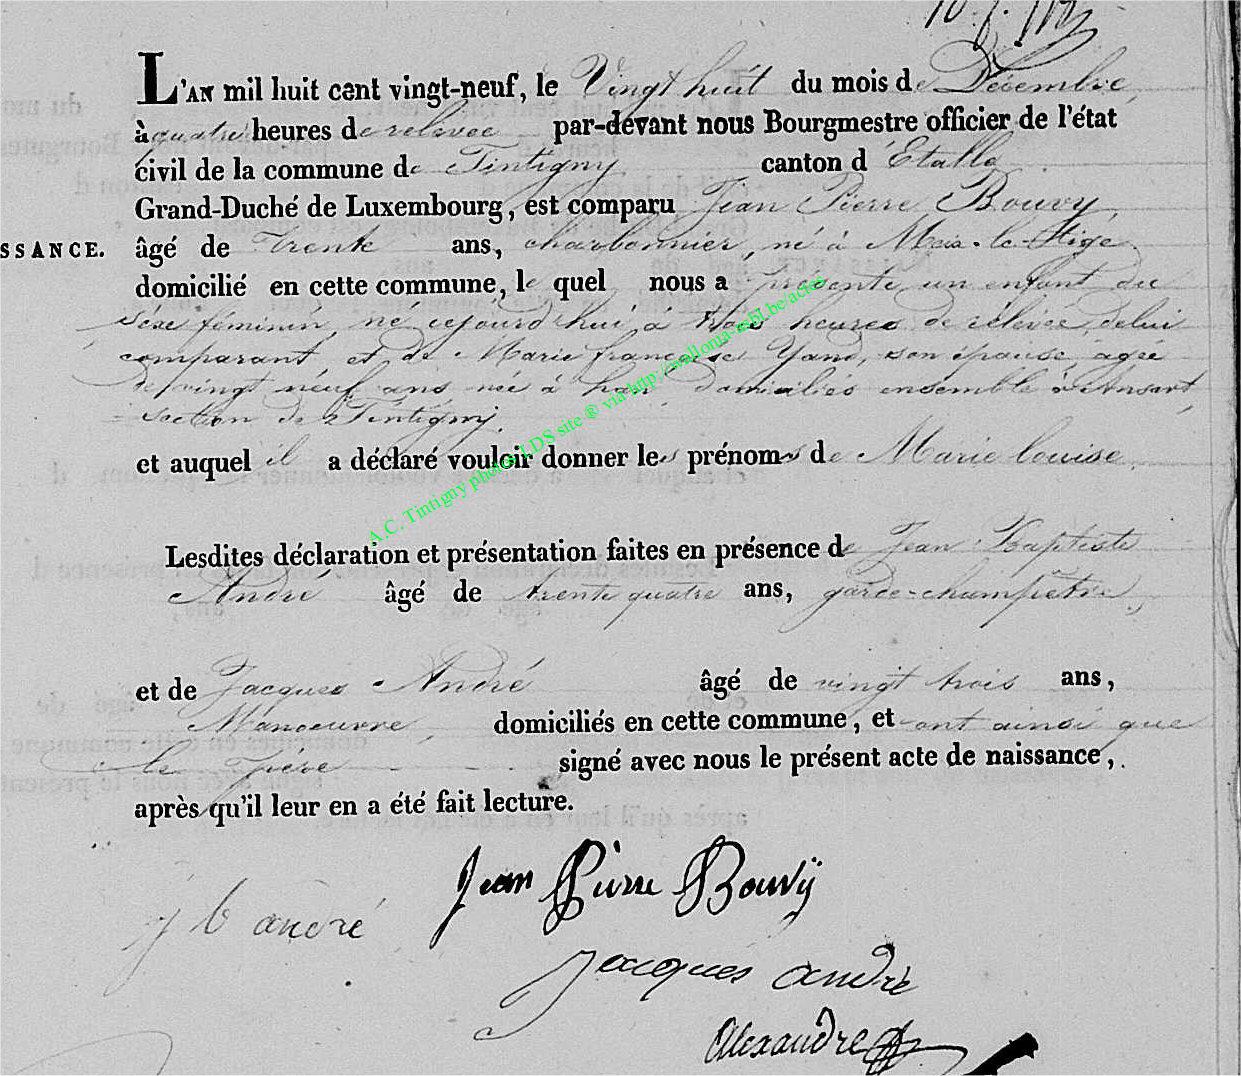 L'AN mil huit cent vingt-neuf, le Vingt huit du mois de Décembre
à quatre heures de relevée par-devant nous Bourgmestre officier de l'état
civil de la commune de Tintigny canton d'Etalle
Grand-Duché de Luxembourg, est comparu Jean Pierre Bouvy,
SSANCE. âgé de Trente ans, charbonnier, né à Meix-le-Tige
domicilié en cette commune, lequel nous a présenté un enfant du
séxe féminin, né cejourd'hui à trois heures de rélévée, de lui
comparant et de Marie françoise Yand, son épouse, agée
de vingt neuf ans née à han domiciliés ensemble à Ansart
section de Tintigny.
et auquel il a déclaré vouloir donner les prénoms de Marie louise
A.C. Tintigny photos LDS site ® via http://wallonia-asbl.be/actes
Lesdites déclaration et présentation faites en présence de Jean Baptiste
André âgé de trente quatre ans, garde-champêtre,
et de Jacques André âgé de vingt trois ans,
Manoeuvre domiciliés en cette commune, et ont ainsi que
le Pere signé avec nous le présent acte de naissance,
après qu'il leur en a été fait lecture.
Jean Pierre Bouvÿ
j b andré
jacques andré
Alexandre